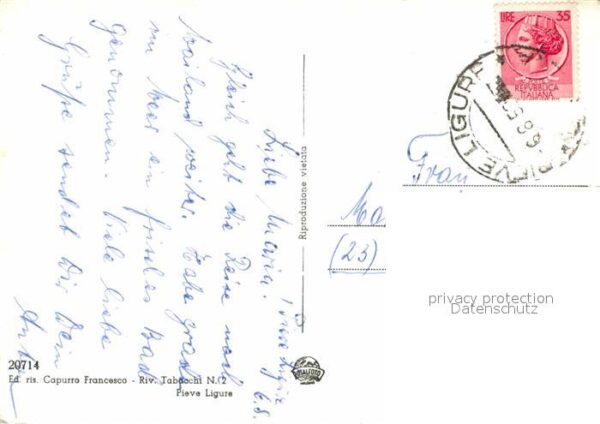 Liebe Maria!
6.8.
Gleich geht die Reise nach
Mailand weiter. Habe grade
im Meer ein frisches Bad
genommen. Viele liebe
Grüße sendet Dir Dein
20714
Ed. ris. Capurro Francesco - Riv. Tabacchi N. 2
Pieve Ligure
Riproduzione vietata
LIRE 35
REPVBBLICA
ITALIANA
PIEVE LIGURE
Frau
(23)
privacy protection
Datenschutz